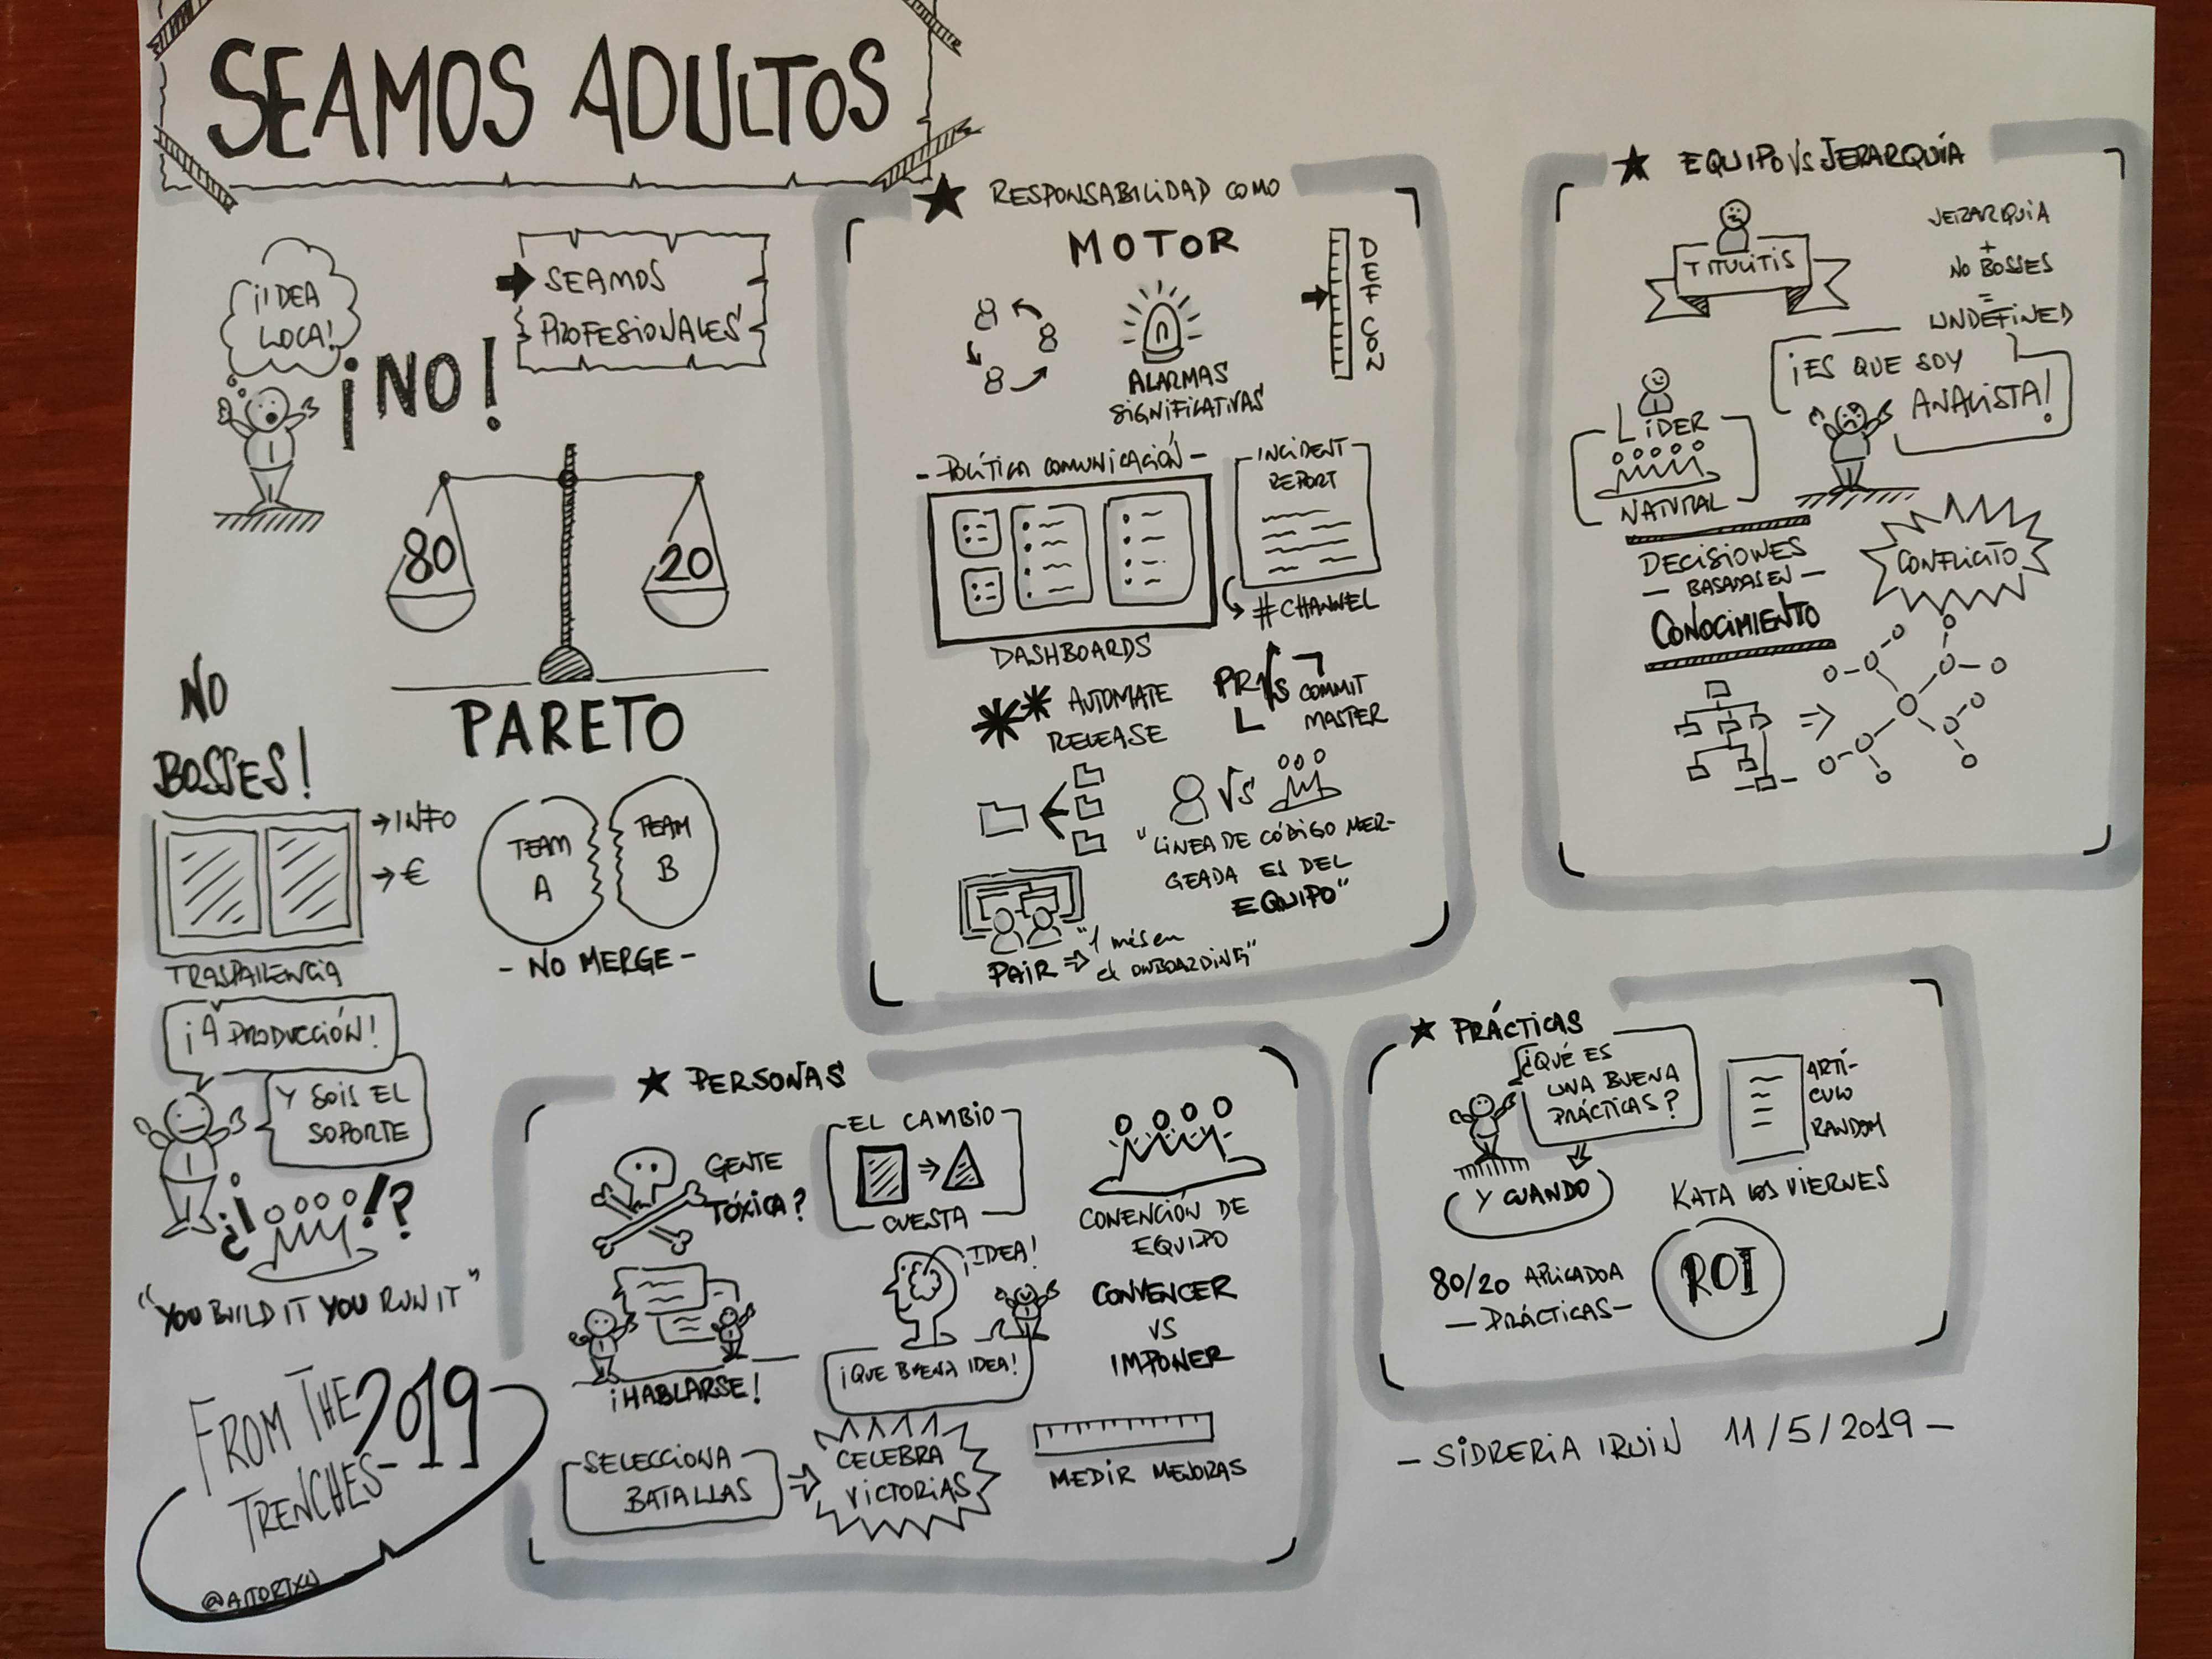 SEAMOS ADULTOS
¡IDEA
LOCA!
¡NO!
SEAMOS
PROFESIONALES
80
20
PARETO
NO
BOSSES!
→ INFO
→ €
TRASPARENCIA
TEAM
A
TEAM
B
- NO MERGE -
¡A PRODUCCIÓN!
Y SOIS EL
SOPORTE
¿¡ !?
"YOU BUILD IT YOU RUN IT"
FROM THE
TRENCHES - 2019
★ RESPONSABILIDAD COMO
MOTOR
ALARMAS
SIGNIFICATIVAS
DEFCON
- POLÍTICA COMUNICACIÓN -
DASHBOARDS
INCIDENT
REPORT
#CHANNEL
AUTOMATE
RELEASE
PR VS COMMIT
MASTER
VS
"LINEA DE CÓDIGO MER-
GEADA ES DEL
EQUIPO"
PAIR ⇒ "1 mes en
el ONBOARDING"
★ EQUIPO VS JERARQUÍA
TITULITIS
JERARQUIA
+
NO BOSSES
=
UNDEFINED
¡ES QUE SOY
ANALISTA!
LIDER
NATURAL
DECISIONES
- BASADAS EN -
CONOCIMIENTO
CONFLICITO
★ PERSONAS
GENTE
TÓXICA?
EL CAMBIO
CUESTA
CONENCIÓN DE
EQUIPO
¡HABLARSE!
¡IDEA!
¡QUE BUENA IDEA!
CONVENCER
VS
IMPONER
SELECCIONA
BATALLAS
CELEBRA
VICTORIAS
MEDIR MEJORAS
★ PRÁCTICAS
¿QUÉ ES
UNA BUENA
PRÁCTICAS?
Y CUANDO
ARTÍ-
CULO
RANDOM
KATA LOS VIERNES
80/20 APLICADO A
- PRÁCTICAS -
ROI
- SIDRERIA IRUIN 11/5/2019 -